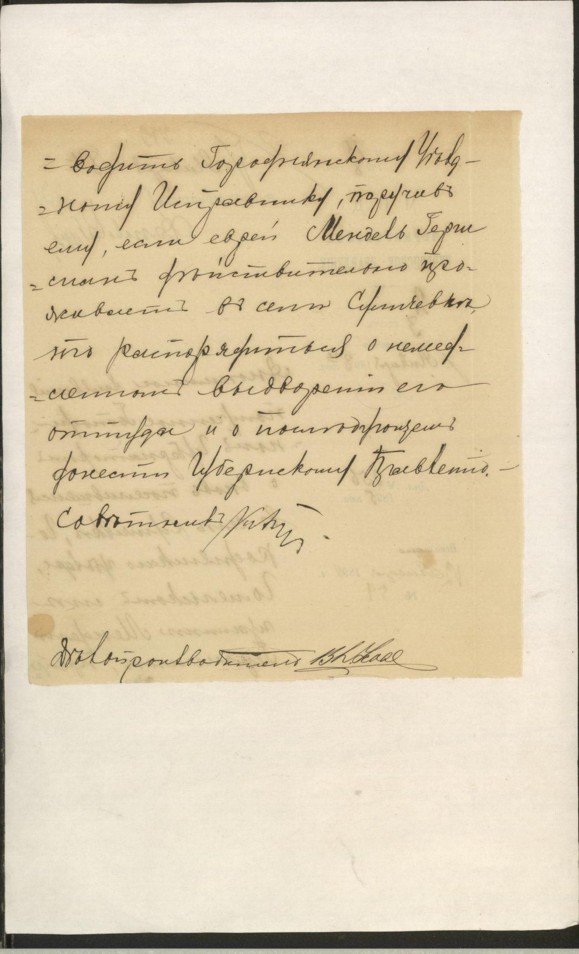 = водить Городнянскому Уѣзд-
= ному Исправнику, поручивъ
ему, если еврей Мендель Герш
= манъ дѣйствительно про-
живаетъ въ селѣ
то распорядиться о немед-
= ленномъ выдвореніи его
оттуда и о послѣдующемъ
донести Губернскому Правленію. –
Совѣтникъ
Дѣлопроизводитель